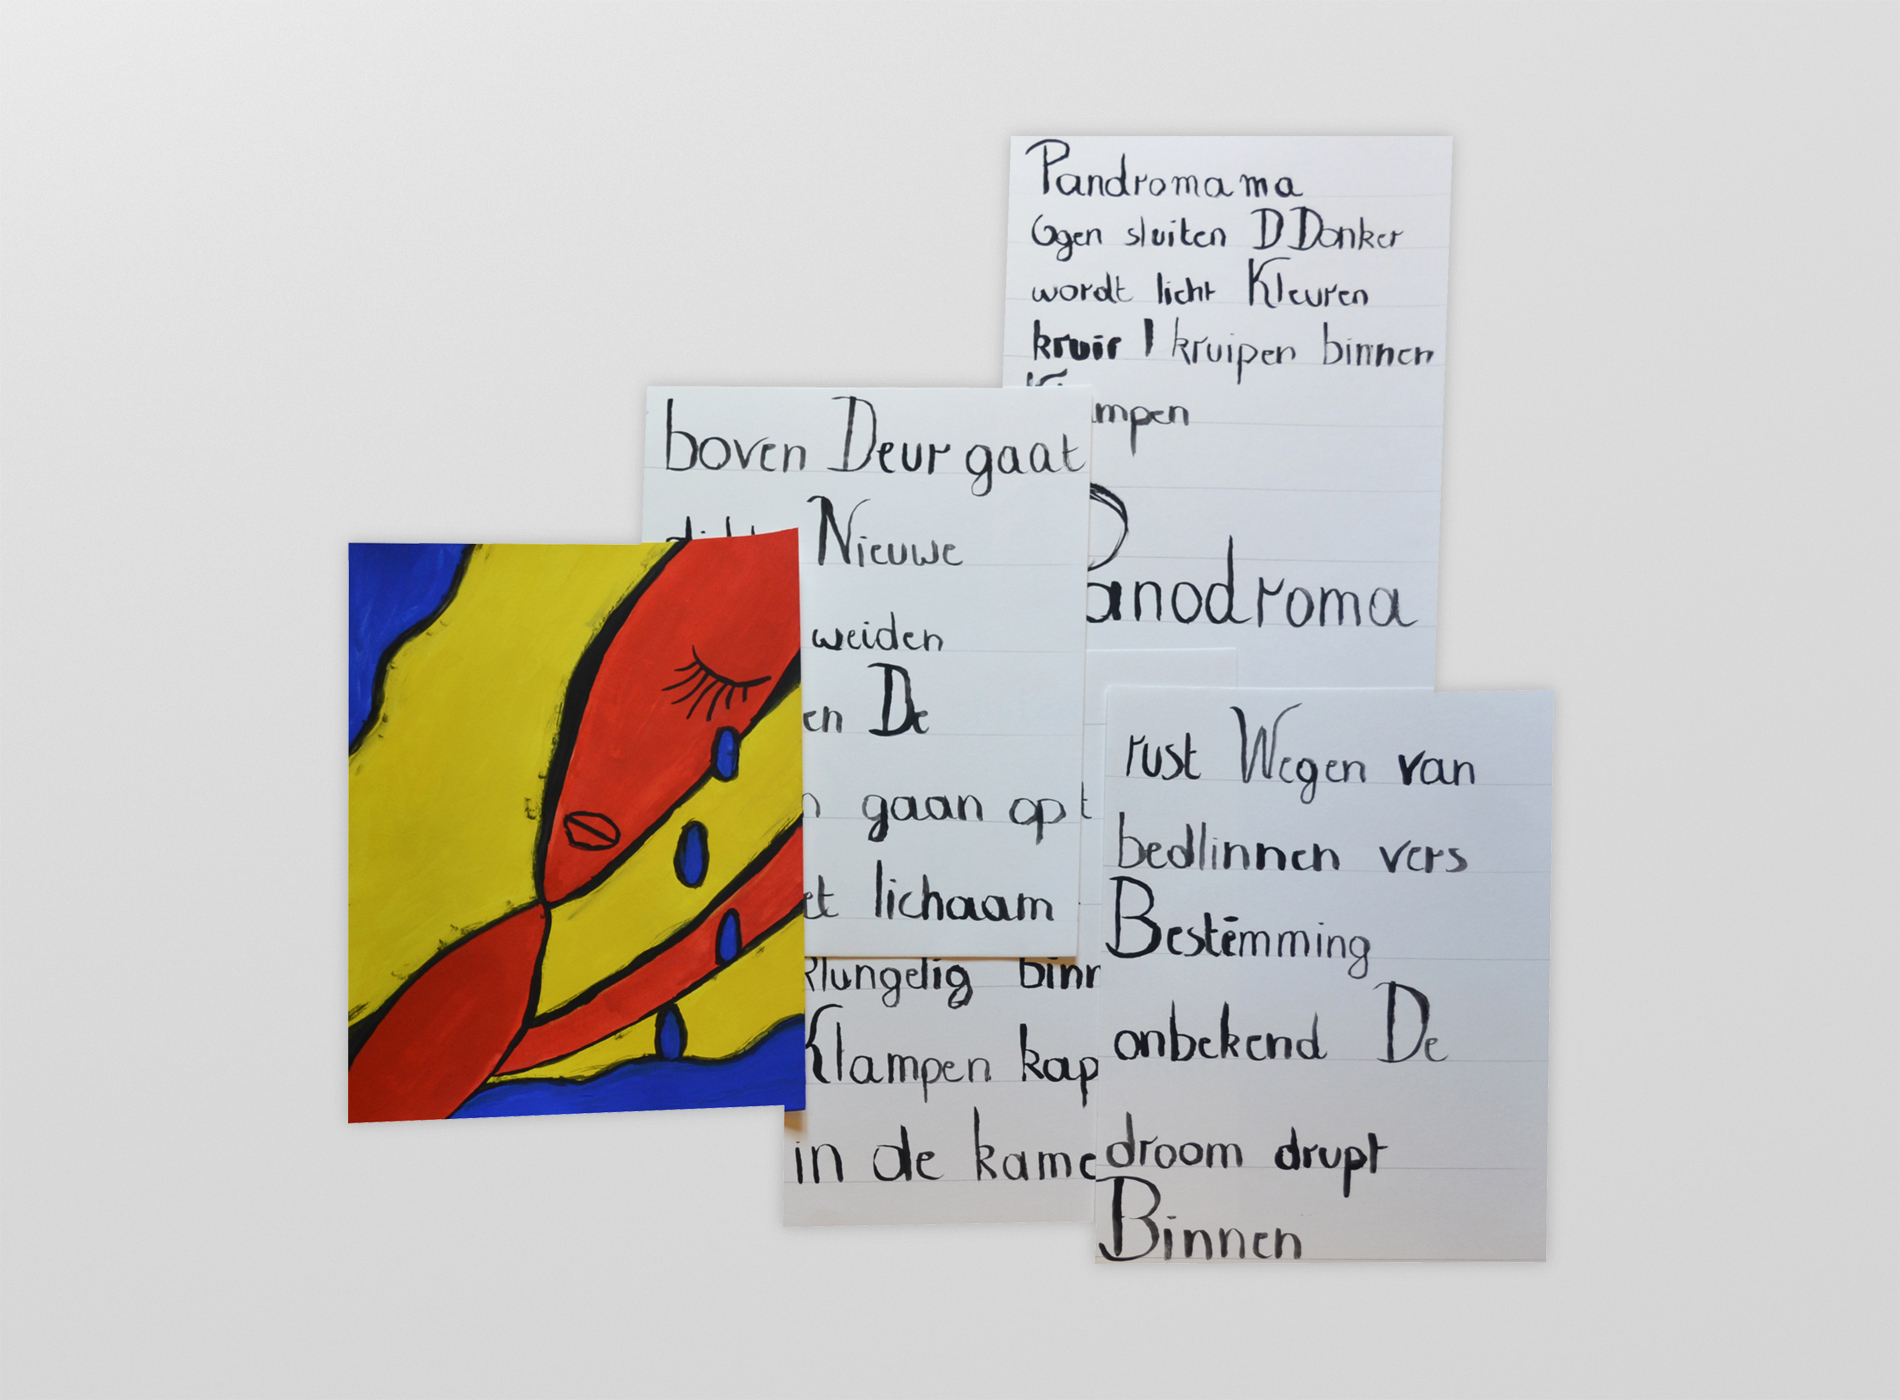 Pandromama
Ogen sluiten D Donker
wordt licht Kleuren
kruip kruipen binnen
mpen
Panodroma
boven Deur gaat
Nieuwe
weiden
en De
n gaan op t
et lichaam
klungelig binn
Klampen kap
in de kame
rust Wegen van
bedlinnen vers
Bestemming
onbekend De
droom drupt
Binnen